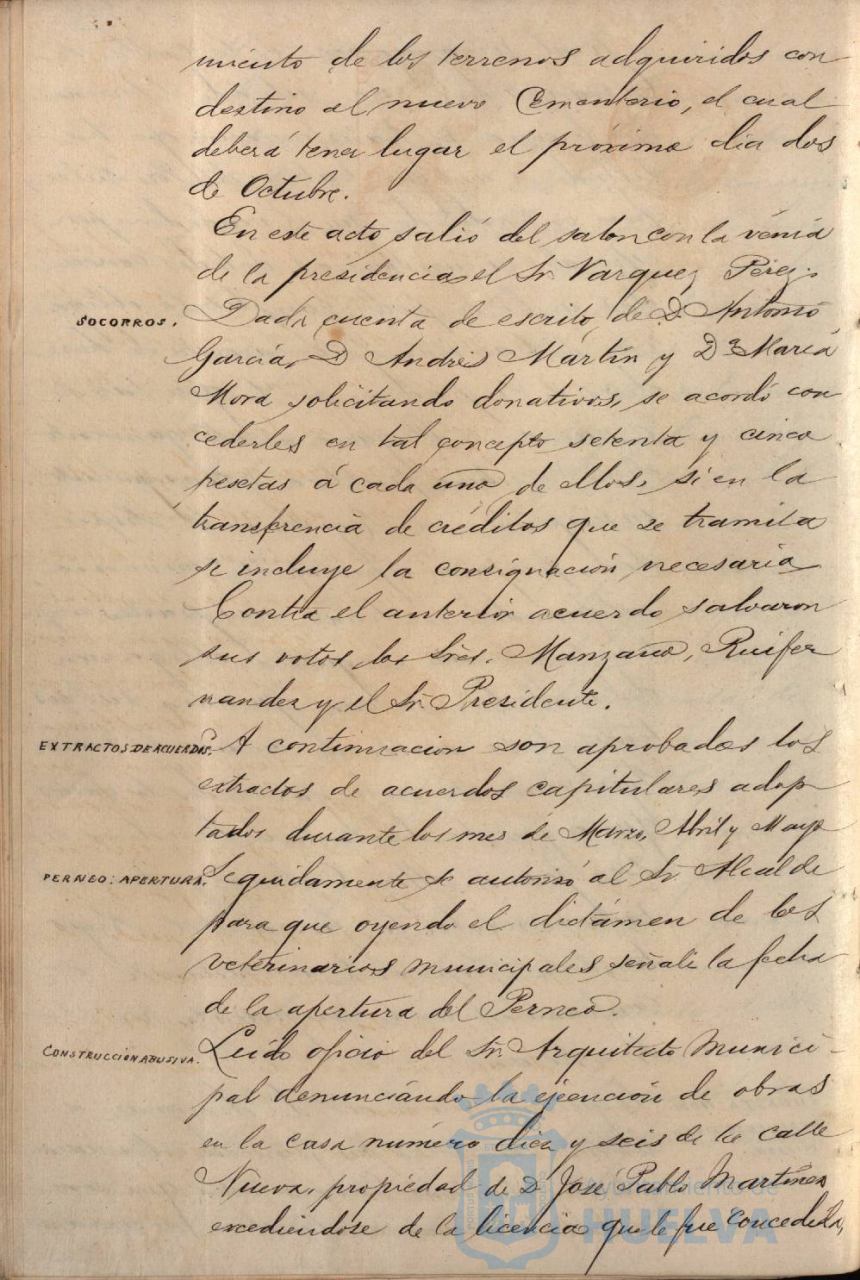 miento de los terrenos adquiridos con
destino al nuevo Cementerio, el cual
deberá tener lugar el próximo dia dos
de Octubre.
En este acto salió del salon con la vénia
de la presidencia, el Sr. Vazquez Pérez.
SOCORROS. Dada cuenta de escrito, de D. Antonio
García, D Andrés Mártin y Dª Maria
Mora solicitando donativos, se acordó con
cederles en tal concepto setenta y cinco
pesetas á cada uno de ellos, si en la
transferencia de créditos que se tramita
se incluye la consignación necesaria
Contra el anterior acuerdo salvaron
sus votos los Sres. Manzano, Ruifer
nandez y el Sr. Presidente.
EXTRACTOS DE ACUERDOS. A continuacion son aprobados los
extractos de acuerdos capitulares adop
tados durante los mes de Marzo, Abril y Mayo
PERNEO: APERTURA. Seguidamente se autorizó al Sr. Alcalde
para que oyendo el dictámen de los
veterinarios municipales, señale la fecha
de la apertura del Perneo.
CONSTRUCCIÓN ABUSIVA. Leido oficio del Sr. Arquitecto Munici-
pal denunciándo la ejecución de obras
en la casa número diez y seis de la calle
Nueva, propiedad de D. José Pablo Martínez
excediéndose de la licencia que le fue concedida,
Ayuntamiento de
HUELVA